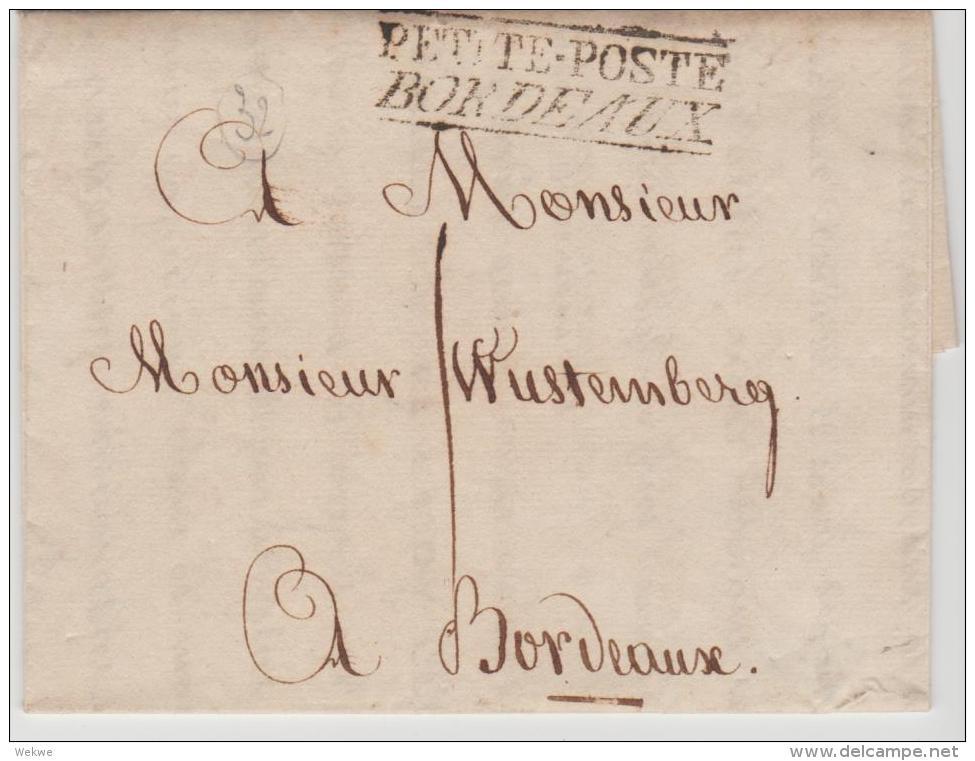 PETITE-POSTE
BORDEAUX
32
A Monsieur
Monsieur Wustemberg
A Bordeaux.
Wekwe
www.delcampe.net